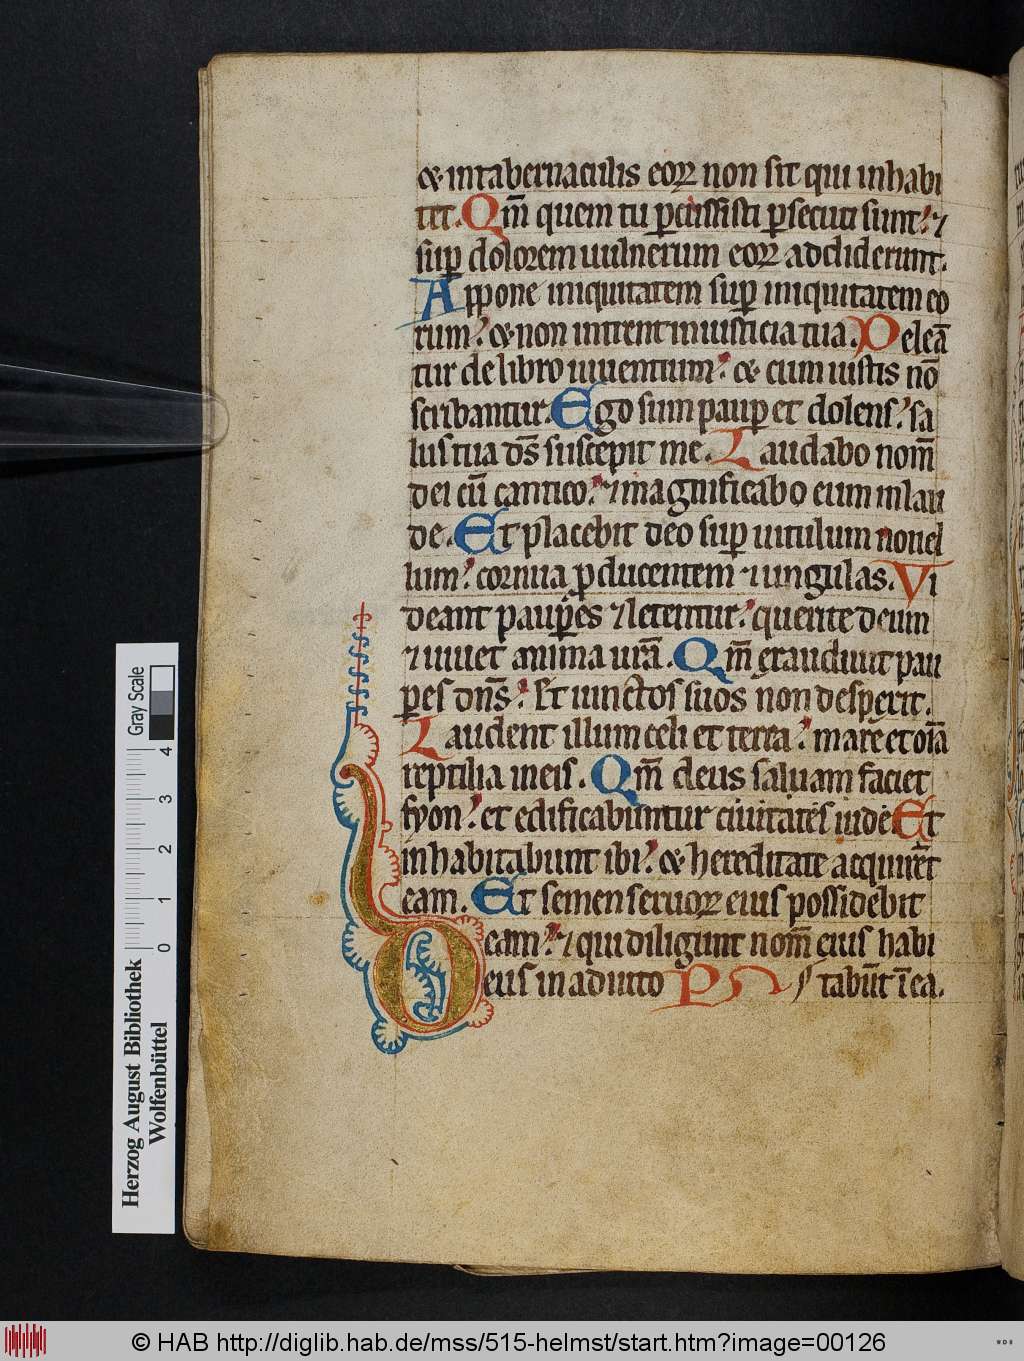 & intabernaculis eoꝝ non sit qui inhabi
tet. Qm̄ quem tu ꝑcussisti ꝑsecuti sunt: ⁊
suꝑ dolorem uulnerum eoꝝ addiderunt.
Appone iniquitatem suꝑ iniquitatem eo
rum: & non intrent in iusticia tua. Deleā
tur de libro uiuentium: & cum iustis nō
scribantur. Ego sum pauꝑ et dolens: sa
lus tua ds̄ suscepit me. Laudabo nom̄
dei cū cantico: ⁊ magnificabo eum in lau
de. Et placebit deo suꝑ uitulum nouel
lum: cornua ꝓducentem ⁊ ungulas. Vi
deant pauꝑes ⁊ letentur: querite deum
⁊ uiuet anima urā. Qm̄ exaudiuit pau
ꝑes dn̄s: Et uinctos suos non despexit.
Laudent illum celi et terra: mare et oīa
reptilia in eis. Qm̄ deus saluam faciet
syon: et edificabuntur ciuitates iude Et
inhabitabunt ibi: & hereditate acquirēt
eam. Et semen seruoꝝ eius possidebit
eam: ⁊ qui diligunt nom̄ eius habi
Deus in adiuto PS tabūt ī ea.
Herzog August Bibliothek
Wolfenbüttel
0 1 2 3 4 Gray Scale
© HAB http://diglib.hab.de/mss/515-helmst/start.htm?image=00126